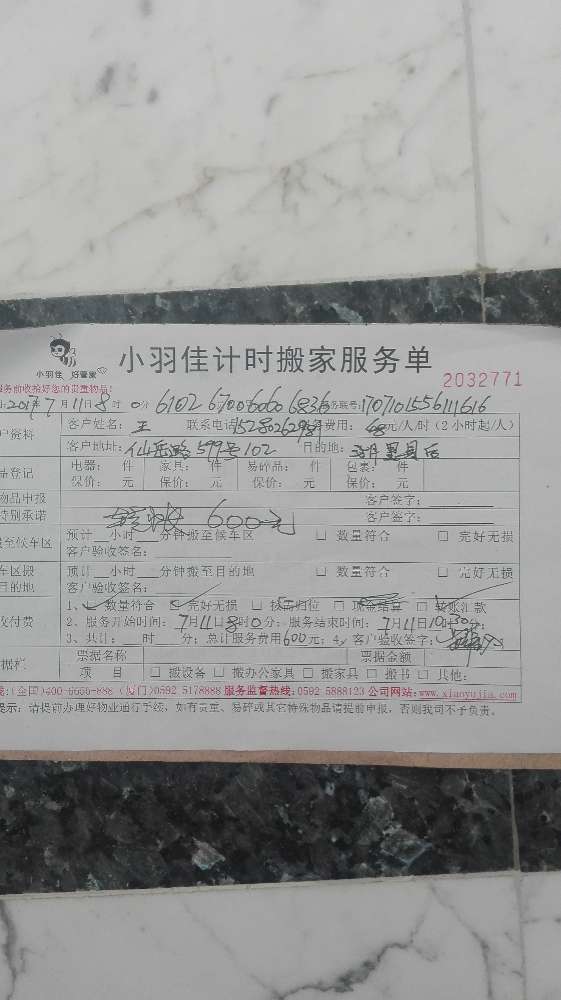 小羽佳 好管家
小羽佳计时搬家服务单
2032771
务前收拾好您的贵重物品!
2017年7月11日8时0分 6102 6700 6060 6836 务联号:170710155611616
户资料 客户姓名: 王 联系电话 费用: 68元/人/时 (2小时起/人)
客户地址: 仙岳路599号102 目的地:
登记 电器: 件 家具: 件 易碎品: 件 包装: 件
保价: 元 保价: 元 保价: 元 保价: 元
物品申报 客户签字:
特别承诺 600元 客户签字:
至候车区 预计 小时 分钟搬至候车区 □ 数量符合 □ 完好无损
客户验收签名:
车区搬 预计 小时 分钟搬至目的地 □ 数量符合 □ 完好无损
目的地 客户验收签名:
1、 数量符合 完好无损 归位 现金结算 转账汇款
收付费 2、服务开始时间: 7月11日8时0分; 服务结束时间: 7月11日10时30分
3、共计: 时 分; 总计服务费用600元; 4、客户验收签字:
据栏 票据名称 票据金额
项 目 □ 搬设备 □ 搬办公家具 □ 搬家具 □ 搬书 □ 其他:
(全国)400-6666-888 (厦门)0592 5178888 服务监督热线:0592 5888123 公司网站:www.xiaoyujia.com
提示: 请提前办理好物业通行手续, 如有贵重、易碎或其它特殊物品请提前申报, 否则我司不予负责。